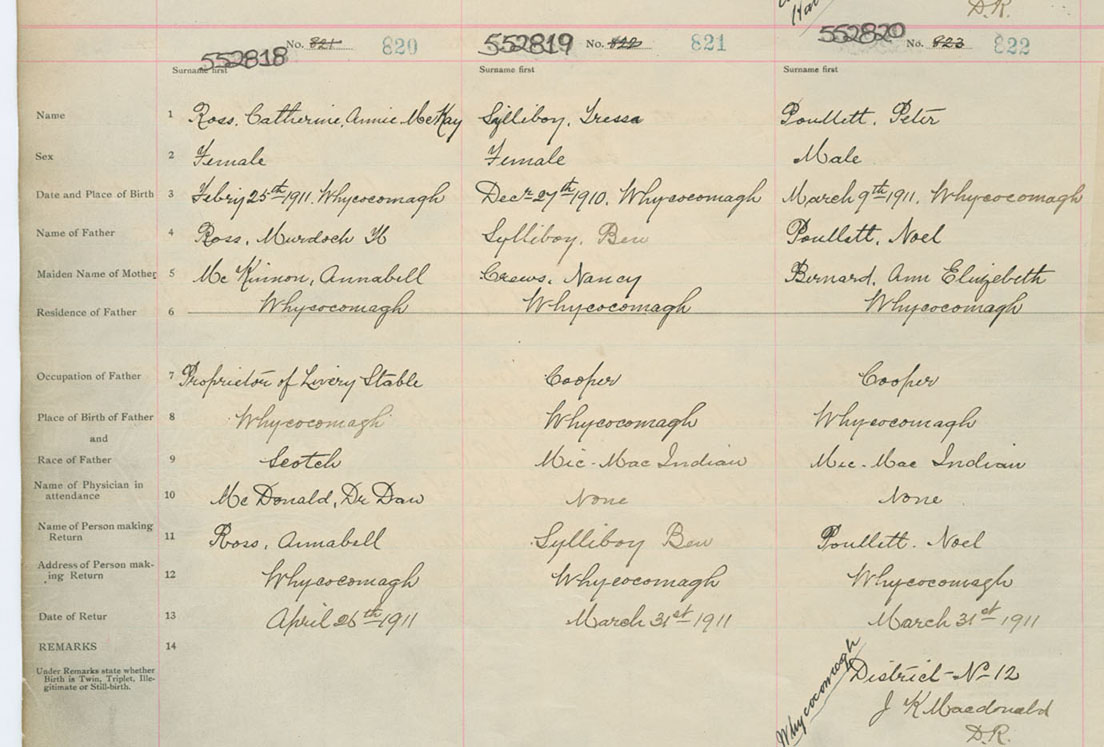 D.R.
552818 No. 821 820 552819 No. 822 821 552820 No. 823 822
Surname first Surname first Surname first
Name 1 Ross, Catherine, Annie McKay Sylliboy, Tressa Poullett, Peter
Sex 2 Female Female Male
Date and Place of Birth 3 Febry 25th 1911, Whycocomagh Decr 27th 1910, Whycocomagh March 9th 1911, Whycocomagh
Name of Father 4 Ross, Murdoch M Sylliboy, Ben Poullett, Noel
Maiden Name of Mother 5 McKinnon, Annabell Crews, Nancy Bernard, Ann Elizebeth
Residence of Father 6 Whycocomagh Whycocomagh Whycocomagh
Occupation of Father 7 Proprietor of Livery Stable Cooper Cooper
Place of Birth of Father 8 Whycocomagh Whycocomagh Whycocomagh
and
Race of Father 9 Scotch Mic-Mac Indian Mic-Mac Indian
Name of Physician in
attendance 10 McDonald, Dr Dan None None
Name of Person making
Return 11 Ross, Annabell Sylliboy Ben Poullett. Noel
Address of Person mak-
ing Return 12 Whycocomagh Whycocomagh Whycocomagh
Date of Retur 13 April 26th 1911 March 31st 1911 March 31st 1911
REMARKS 14
Under Remarks state whether
Birth is Twin, Triplet, Ille-
gitimate or Still-birth.
Whycocomagh
District - No 12
J K Macdonald
D.R.